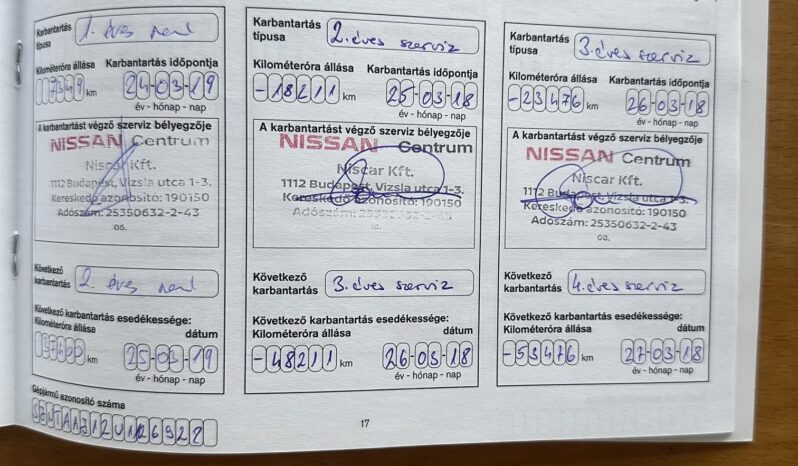 Karbantartás típusa 1. éves
Kilométeróra állása Karbantartás időpontja
17349 km 24-03-19
év - hónap - nap
A karbantartást végző szerviz bélyegzője
NISSAN Centrum
Niscar Kft.
1112 Budapest, Vizsla utca 1-3.
Kereskedő azonosító: 190150
Adószám: 25350632-2-43
08.
Következő karbantartás 2. éves
Következő karbantartás esedékessége:
Kilométeróra állása dátum
km 25-03-19
év - hónap - nap
Gépjármű azonosító száma
Karbantartás típusa 2. éves szerviz
Kilométeróra állása Karbantartás időpontja
-18211 km 25-03-18
év - hónap - nap
A karbantartást végző szerviz bélyegzője
NISSAN Centrum
Niscar Kft.
1112 Budapest, Vizsla utca 1-3.
Kereskedő azonosító: 190150
Adószám: 25350632-2-43
10.
Következő karbantartás 3. éves szerviz
Következő karbantartás esedékessége:
Kilométeróra állása dátum
-48211 km 26-03-18
év - hónap - nap
17
Karbantartás típusa 3. éves szerviz
Kilométeróra állása Karbantartás időpontja
-23476 km 26-03-18
év - hónap - nap
A karbantartást végző szerviz bélyegzője
NISSAN Centrum
Niscar Kft.
1112 Budapest, Vizsla utca 1-3.
Kereskedő azonosító: 190150
Adószám: 25350632-2-43
08.
Következő karbantartás 4. éves szerviz
Következő karbantartás esedékessége:
Kilométeróra állása dátum
-53476 km 27-03-18
év - hónap - nap